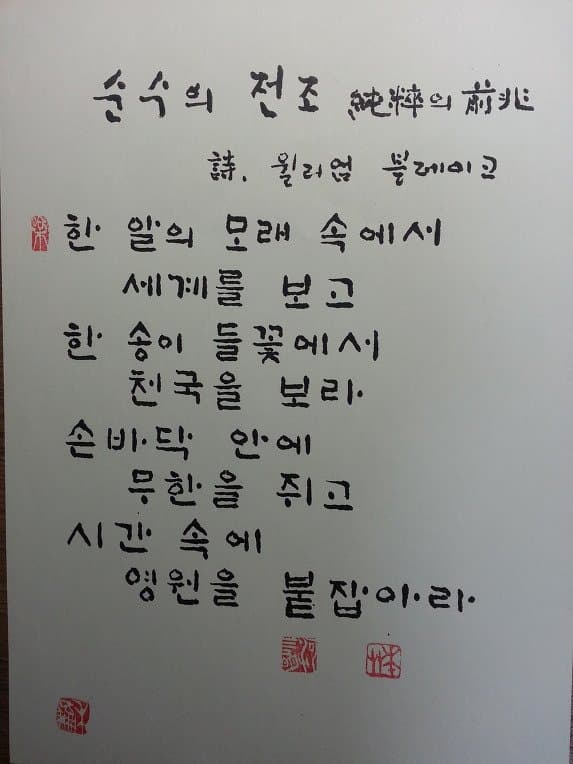 순수의 전조 純粹의 前兆
詩. 윌리엄 블레이크
한 알의 모래 속에서
세계를 보고
한 송이 들꽃에서
천국을 보라
손바닥 안에
무한을 쥐고
시간 속에
영원을 붙잡이라